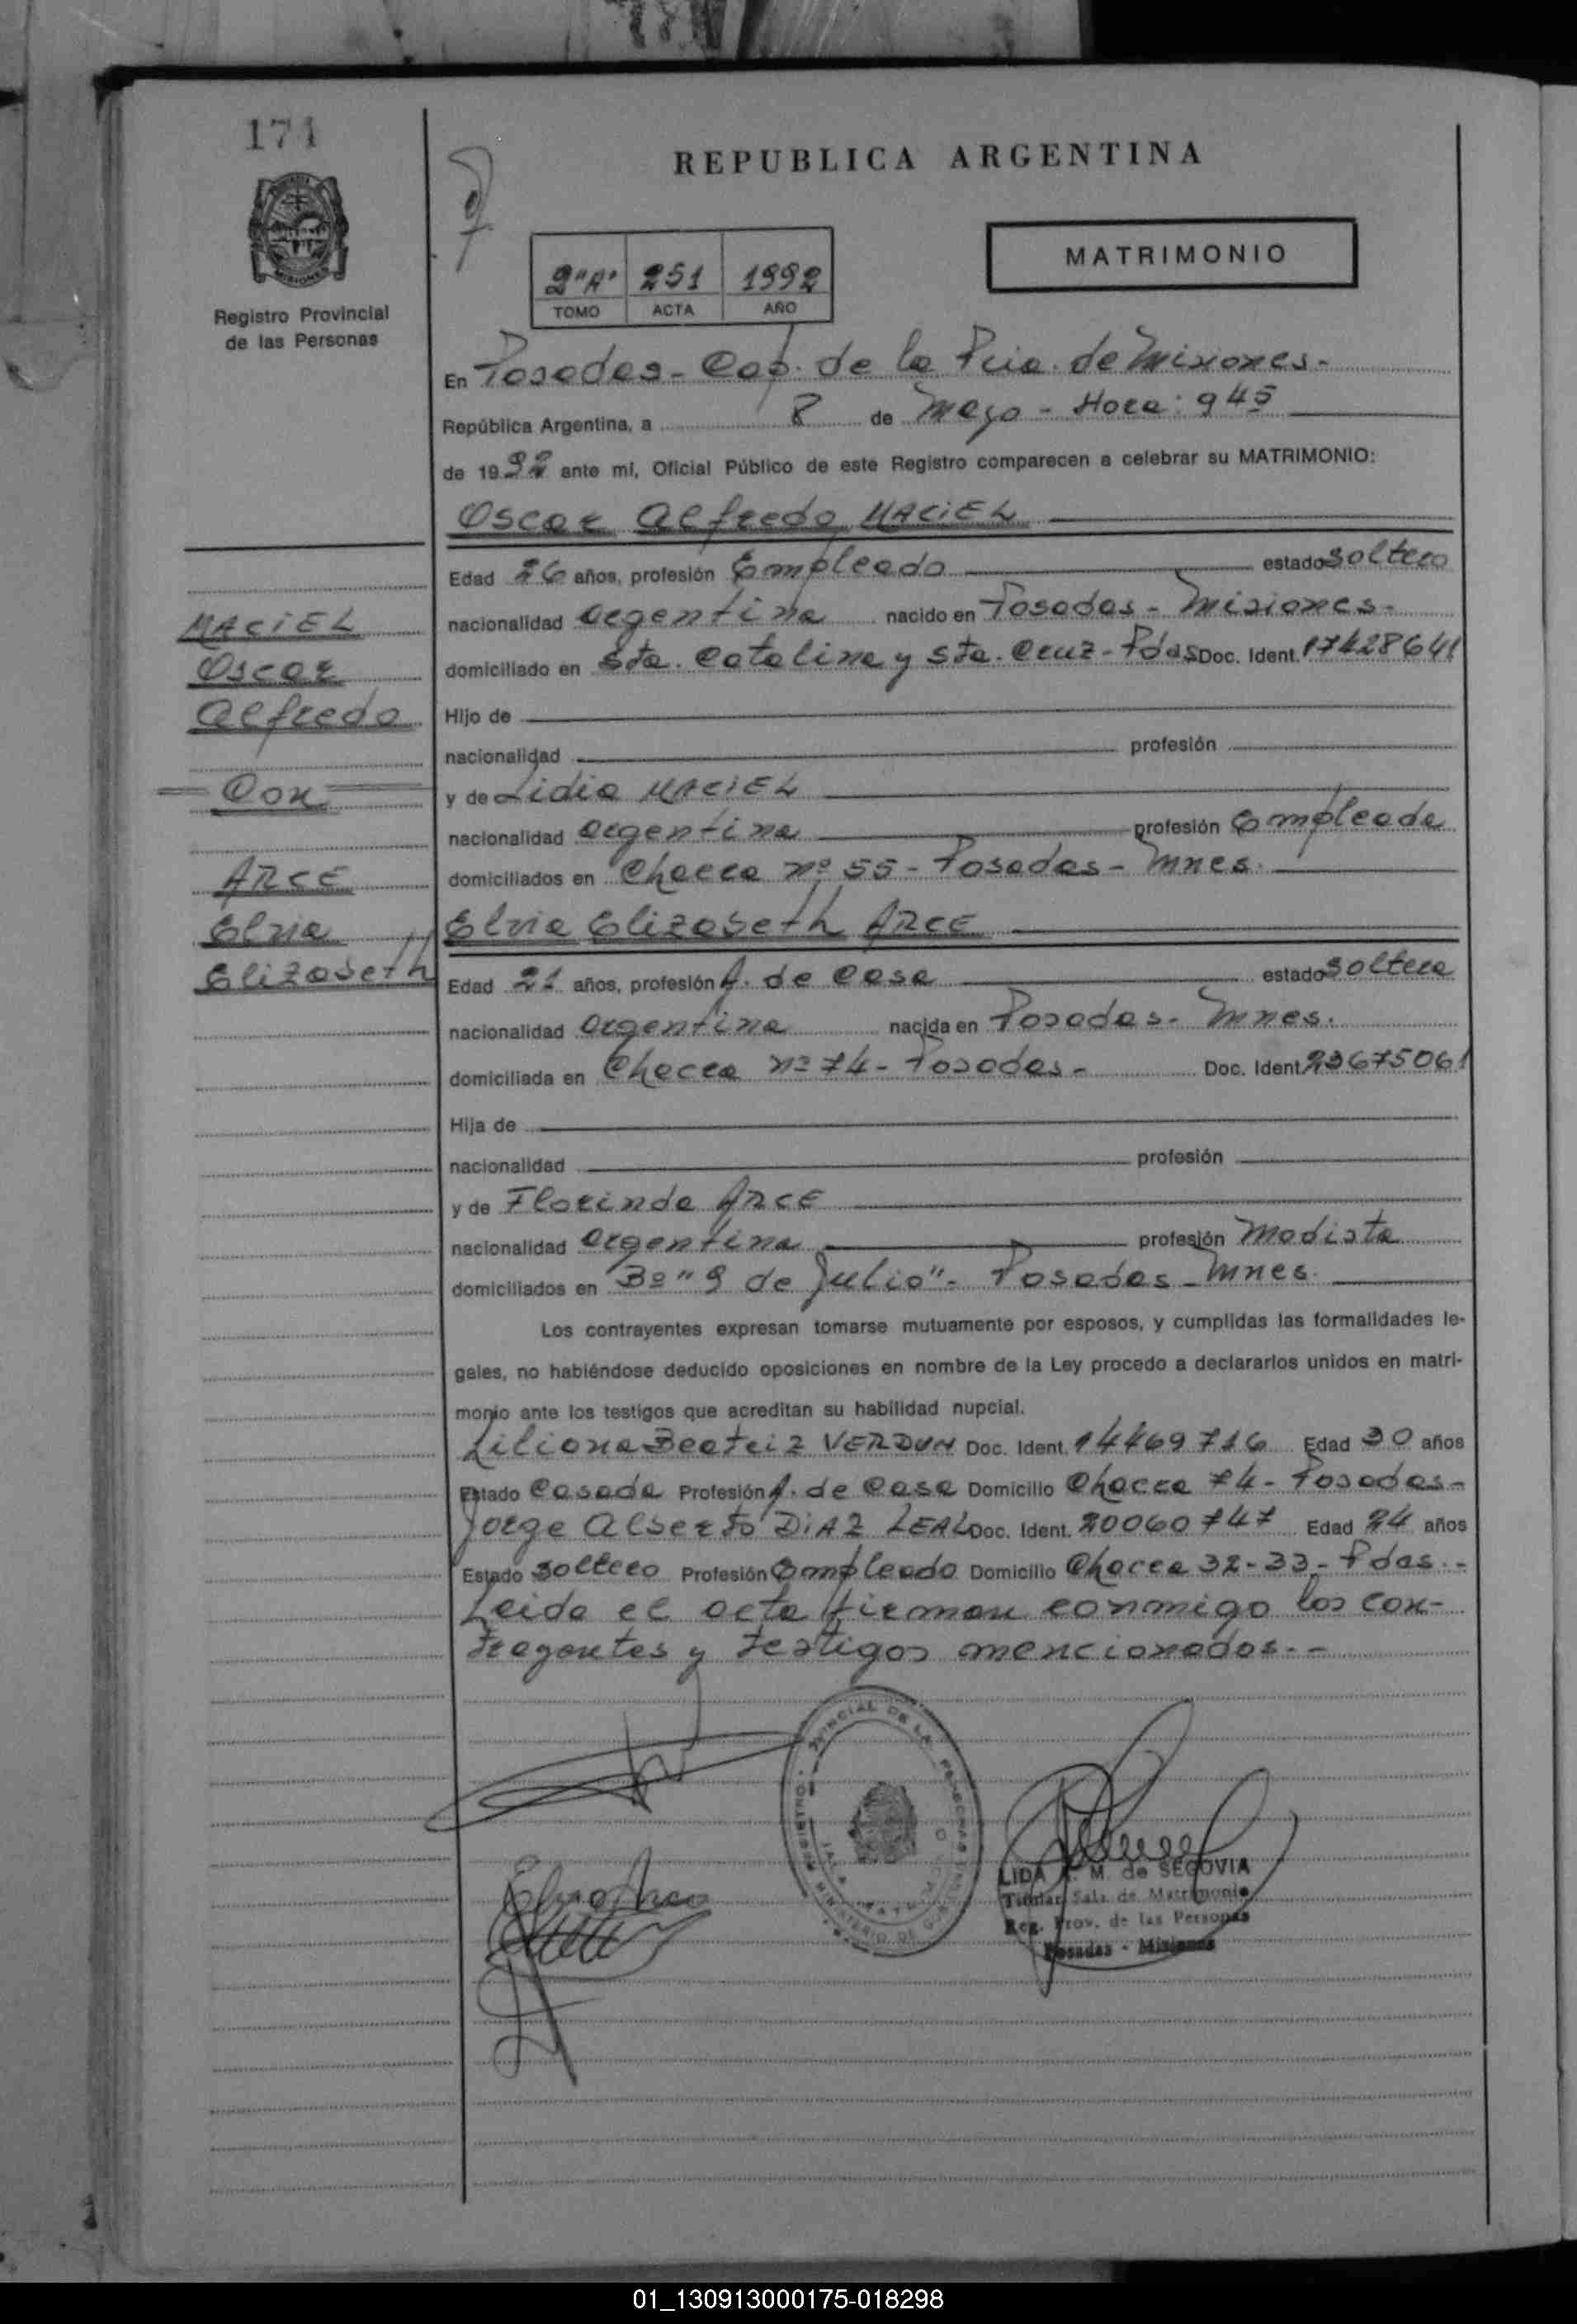 171
REPUBLICA ARGENTINA
MATRIMONIO
2"A" 251 1992
TOMO ACTA AÑO
Registro Provincial
de las Personas
En Posadas - Cap. de la Pcia. de Misiones -
República Argentina, a 8 de Mayo - Hora: 9 45
de 1992 ante mi, Oficial Público de este Registro comparecen a celebrar su MATRIMONIO:
Oscar Alfredo MACIEL
Edad 26 años, profesión Empleado estado soltero
MACIEL
nacionalidad argentina nacido en Posadas - Misiones -
Oscar
domiciliado en Sta. Catalina y Sta. Cruz - Pdas Doc. Ident. 17428641
Alfredo
Hijo de
nacionalidad profesión
Con
y de Lidia MACIEL
nacionalidad argentina profesión Empleada
ARCE
domiciliados en Chacra nº 55 - Posadas - Mnes.
Elvia
Elvia Elizabeth ARCE
Elizabeth
Edad 21 años, profesión A. de Casa estado soltera
nacionalidad argentina nacida en Posadas - Mnes.
domiciliada en Chacra nº 74 - Posadas - Doc. Ident 23675061
Hija de
nacionalidad profesión
y de Florinda ARCE
nacionalidad argentina profesión Modista
domiciliados en Bº "9 de Julio" - Posadas - Mnes.
Los contrayentes expresan tomarse mutuamente por esposos, y cumplidas las formalidades le-
gales, no habiéndose deducido oposiciones en nombre de la Ley procedo a declararlos unidos en matri-
monio ante los testigos que acreditan su habilidad nupcial.
Liliana Beatriz VERDUN Doc. Ident. 14469716 Edad 30 años
Estado Casada Profesión A. de Casa Domicilio Chacra 74 - Posadas -
Jorge Alberto DIAZ LEAL Doc. Ident. 20060747 Edad 24 años
Estado soltero Profesión Empleado Domicilio Chacra 32-33 - Pdas. -
Leida el acta firman conmigo los con-
trayentes y testigos mencionados. -
LIDA M. de SEGOVIA
Titular Sala de Matrimonio
Reg. Prov. de las Personas
Posadas - Misiones
01_130913000175-018298